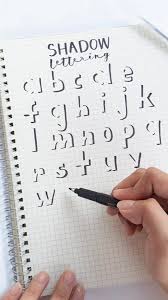 SHADOW
lettering
a b c d e
f g h i j k
l m n o p q
r s t u v
w